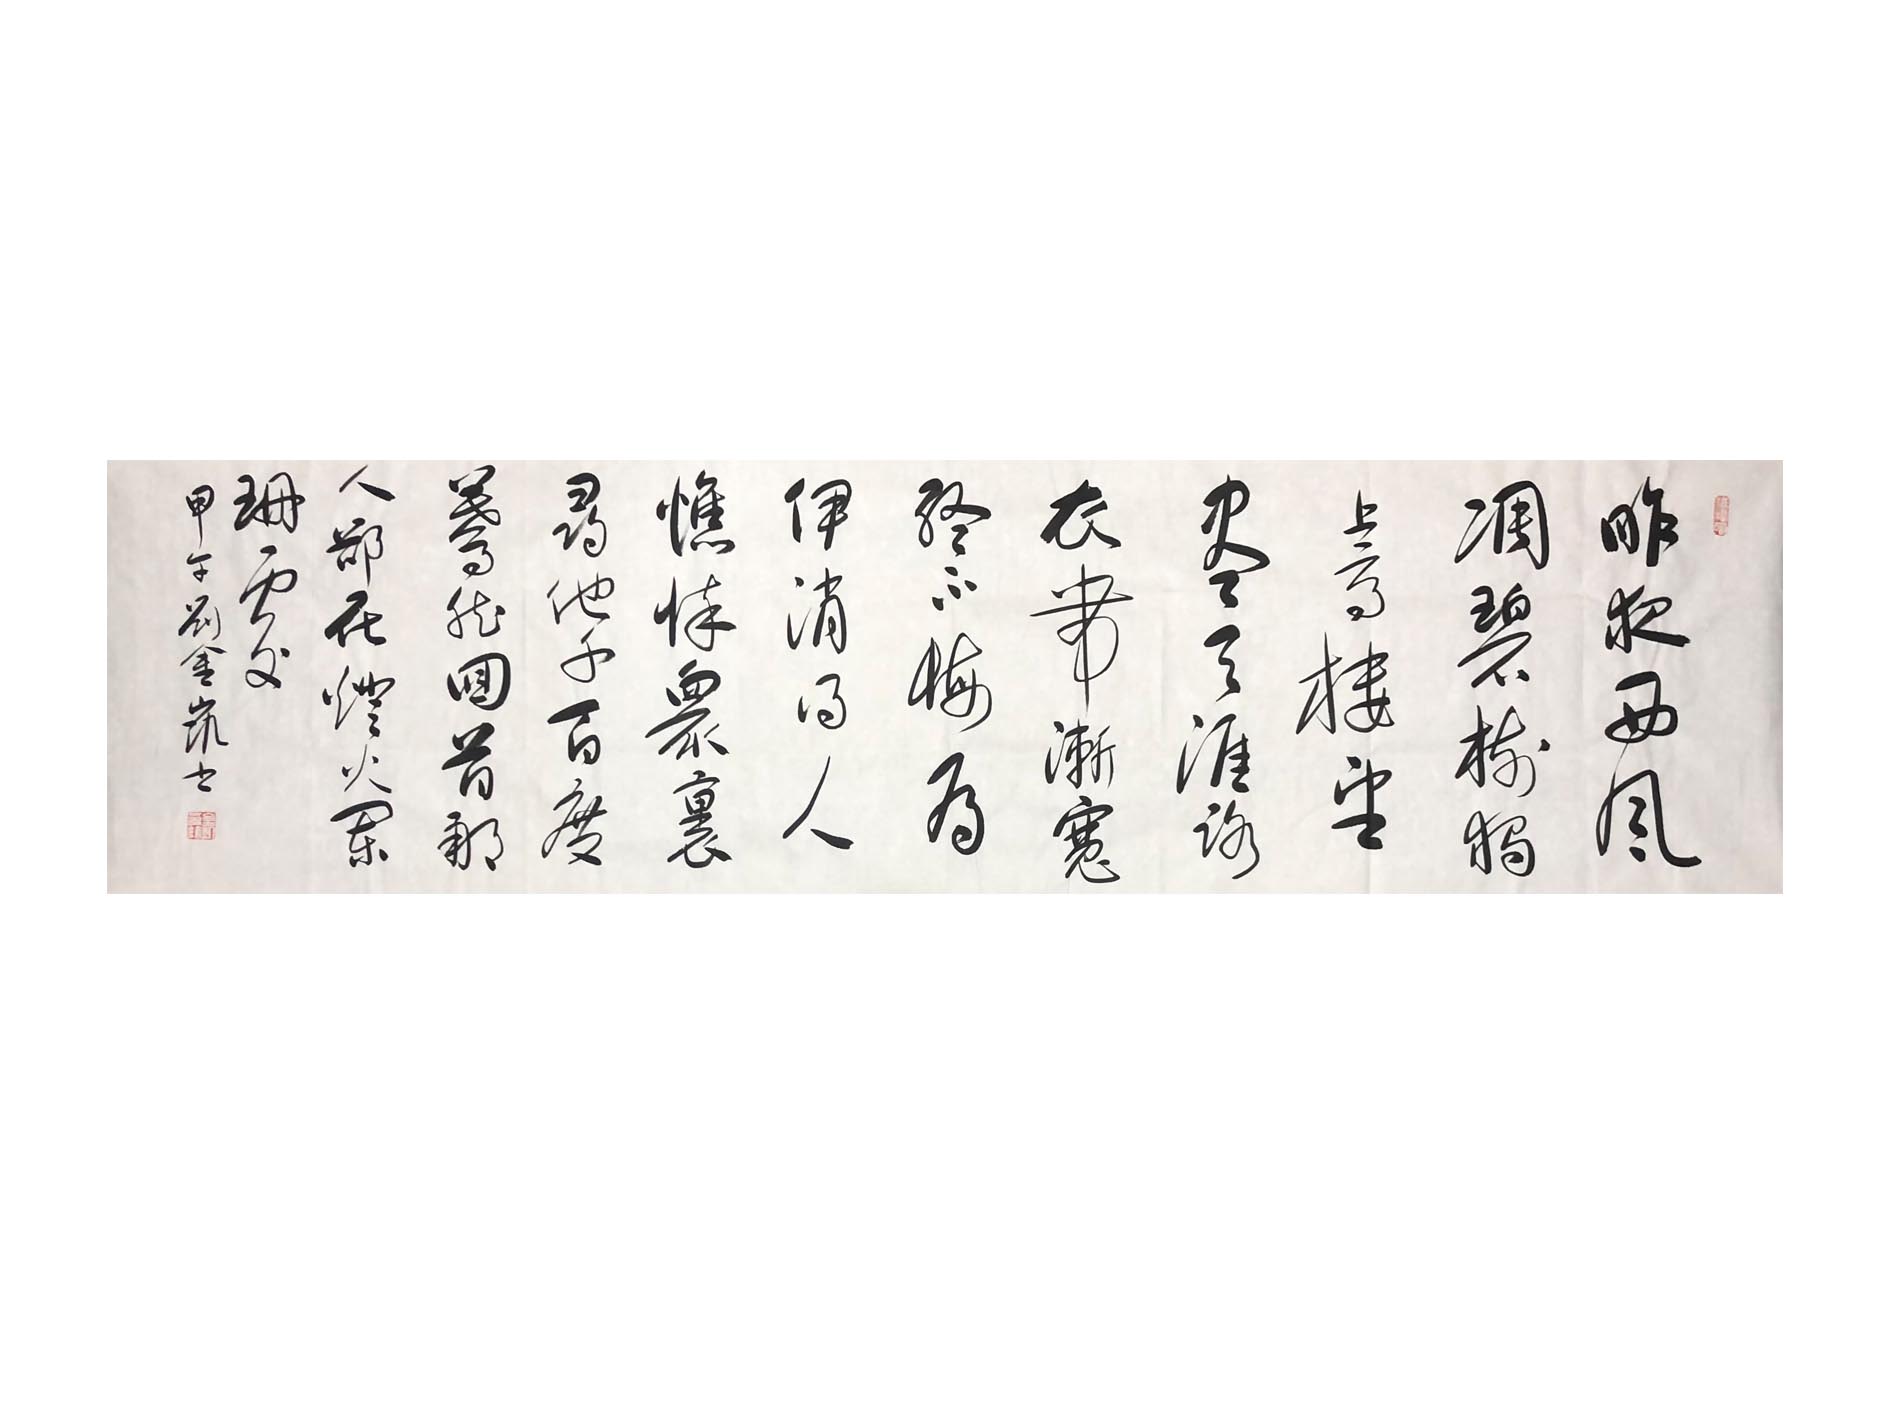 昨夜西風
凋碧樹獨
上高樓望
盡天涯路
衣帶漸寬
終不悔為
伊消得人
憔悴眾裏
尋他千百度
驀然回首那
人卻在燈火闌
珊處
甲午劉金凱書